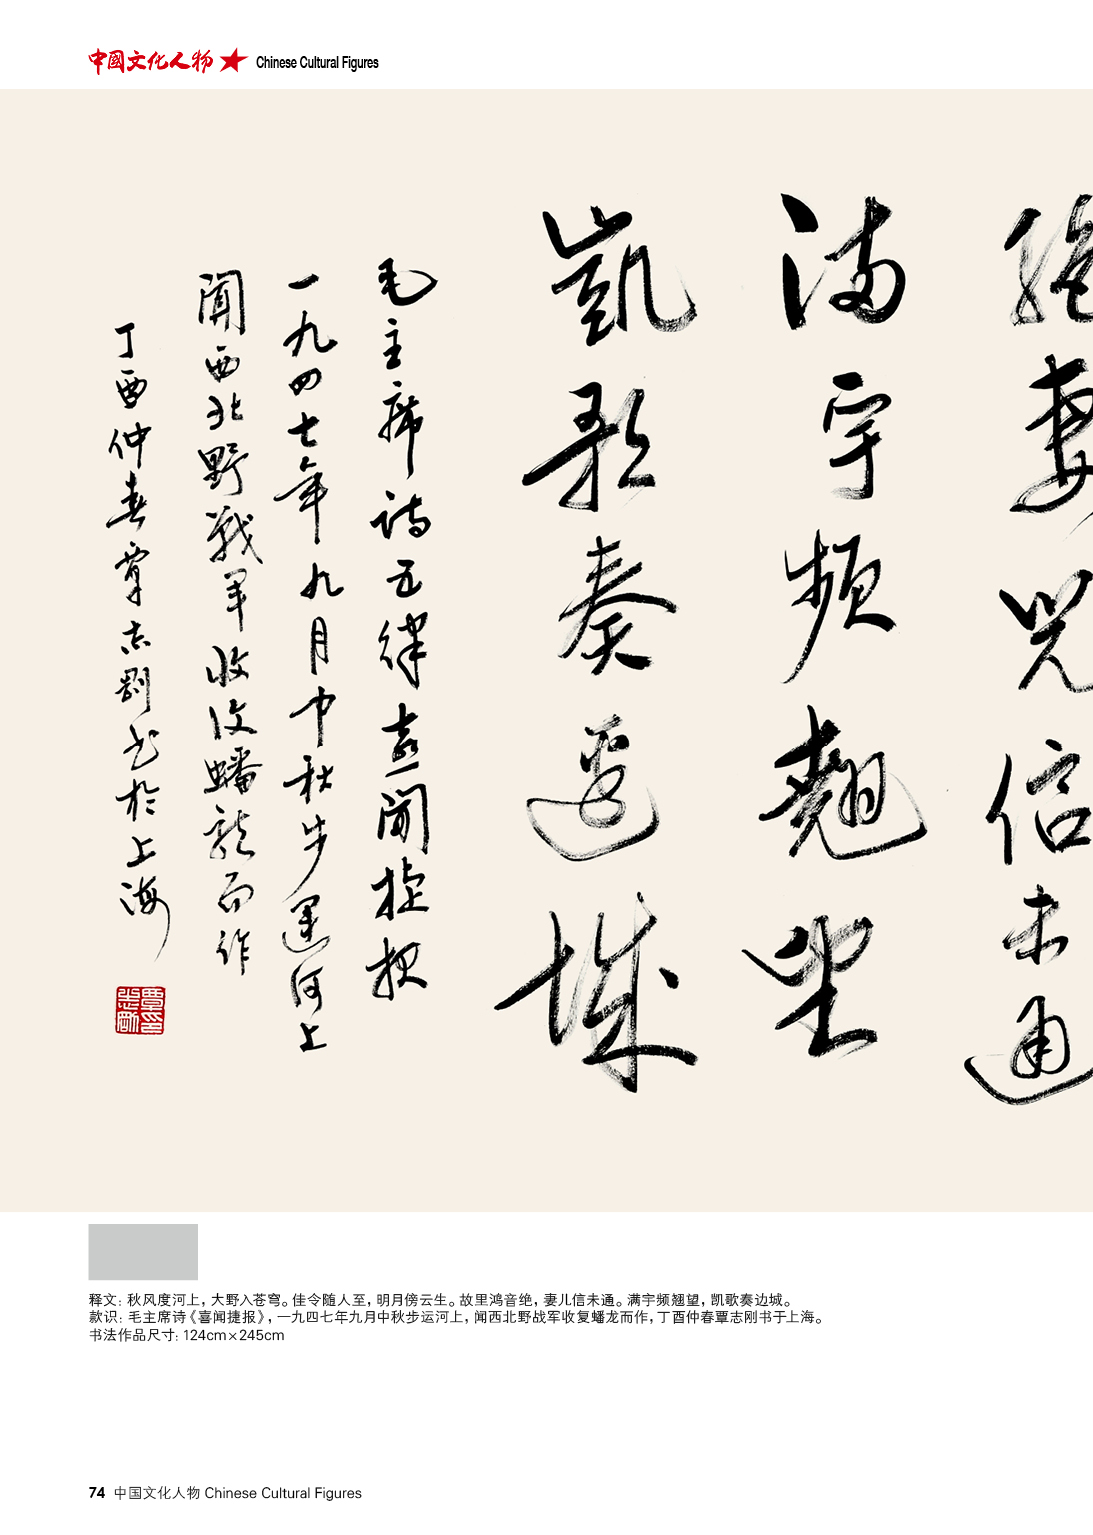 中國文化人物 Chinese Cultural Figures
絕妻兒信未通
滿宇頻翹望
凱歌奏邊城
毛主席詩五律喜聞捷報
一九四七年九月中秋步運河上
聞西北野戰軍收復蟠龍而作
丁酉仲春覃志剛书於上海
覃印志剛
释文：秋风度河上，大野入苍穹。佳令随人至，明月傍云生。故里鸿音绝，妻儿信未通。满宇频翘望，凯歌奏边城。
款识：毛主席诗《喜闻捷报》，一九四七年九月中秋步运河上，闻西北野战军收复蟠龙而作，丁酉仲春覃志刚书于上海。
书法作品尺寸：124cm×245cm
74 中国文化人物 Chinese Cultural Figures